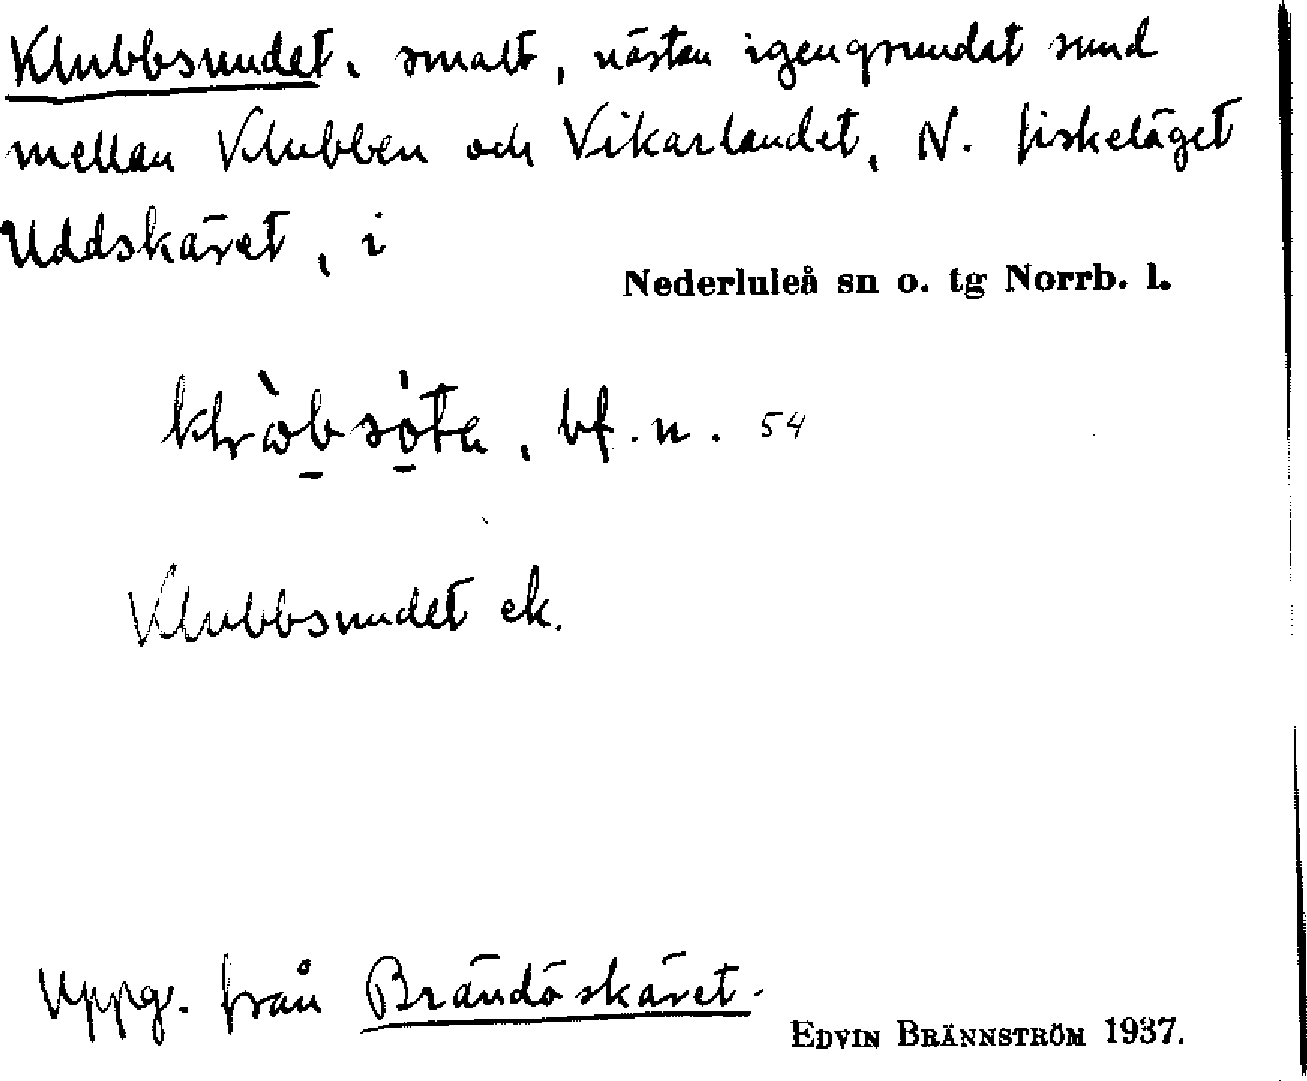 Klubbsundet, smalt, nästan igengrundat sund
mellan Klubben och Vikarlandet, N. fiskeläget
Uddskäret, i
Nederluleå sn o. tg Norrb. l.
bf. n. 54
Klubbsundet ek.
Uppg. från Brändöskäret.
EDVIN BRÄNNSTRÖM 1937.